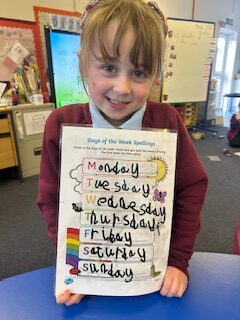 Days of the Week Spellings
Monday
Tuesday
Wednesday
Thursday
Friday
Saturday
Sunday